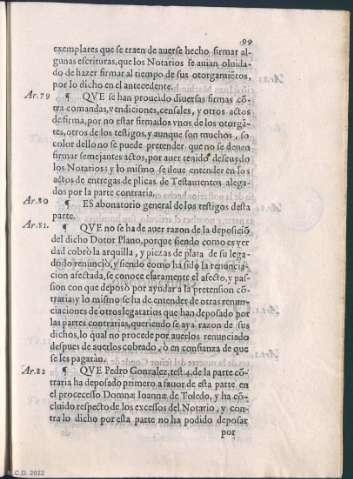 99
exemplares que se traen de auerse hecho firmar al-
gunas escrituras, que los Notarios se auian oluida-
do de hazer firmar al tiempo de sus otorgamiẽtos,
por lo dicho en el antecedente.
Ar.79 ¶ QVE se han proueido diuersas firmas cõ-
tra comandas, vendiciones, censales, y otros actos
de firma, por no estar firmados vnos de los otorgã-
tes, otros de los testigos, y aunque son muchos, so
color dello no se puede pretender que no se deuen
firmar semejantes actos, por auer tenido descuydo
los Notarios: y lo mismo se deue entender en los
actos de entregas de plicas de Testamentos alega-
dos por la parte contraria.
Ar.80 ¶ ES abonatorio general de los testigos desta
parte.
Ar.81. ¶ QVE no se ha de auer razon de la deposiciõ
del dicho Dotor Plano, porque siendo como es ver
dad cobrò la arquilla, y piezas de plata de su lega-
do no renunciò, y siendo como ha sido la renuncia-
cion afectada, se conoce claramente el afecto, y pas-
sion con que deposò por ayudar a la pretension cõ-
traria: y lo mismo se ha de entender de otras renun-
ciaciones de otros legatarios que han deposado por
las partes contrarias, queriendo se aya razon de sus
dichos, lo qual no procede por auerlos renunciado
despues de auerlos cobrado, ò en confiança de que
se les pagaràn.
Ar.82 ¶ QVE Pedro Gonzalez, test. 4. de la parte cõ-
traria ha deposado primero a fauor de esta parte en
el proccesso Domnæ Ioannæ de Toledo, y ha cõ-
cluido respecto de los excessos del Notario, y con-
tra lo dicho por esta parte no ha podido deposar
por
C.D. 2022